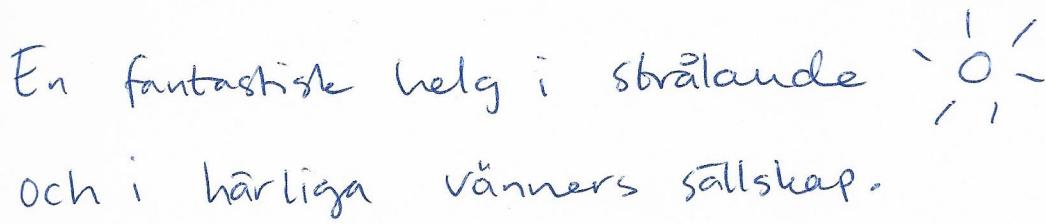 En fantastisk helg i strålande
och i härliga vänners sällskap.